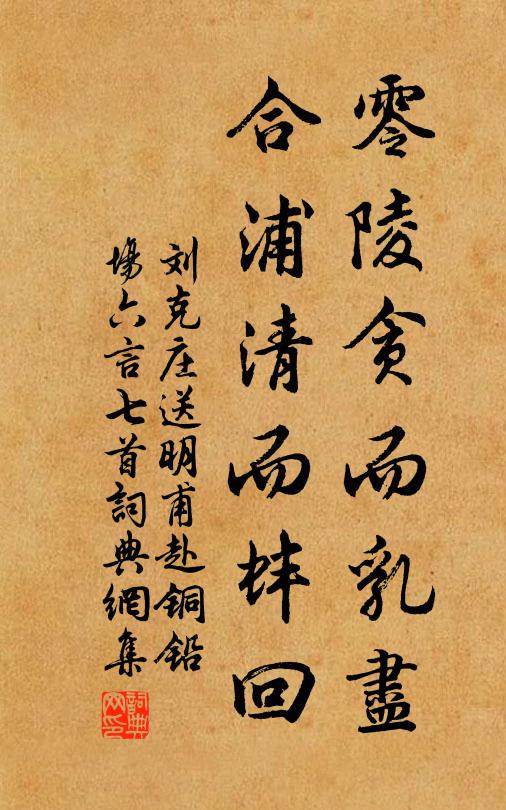 零陵贪而乳盡
合浦清而蚌回
刘克庄送明甫赴铜铅
場六言七首詞典網集
詞典网印